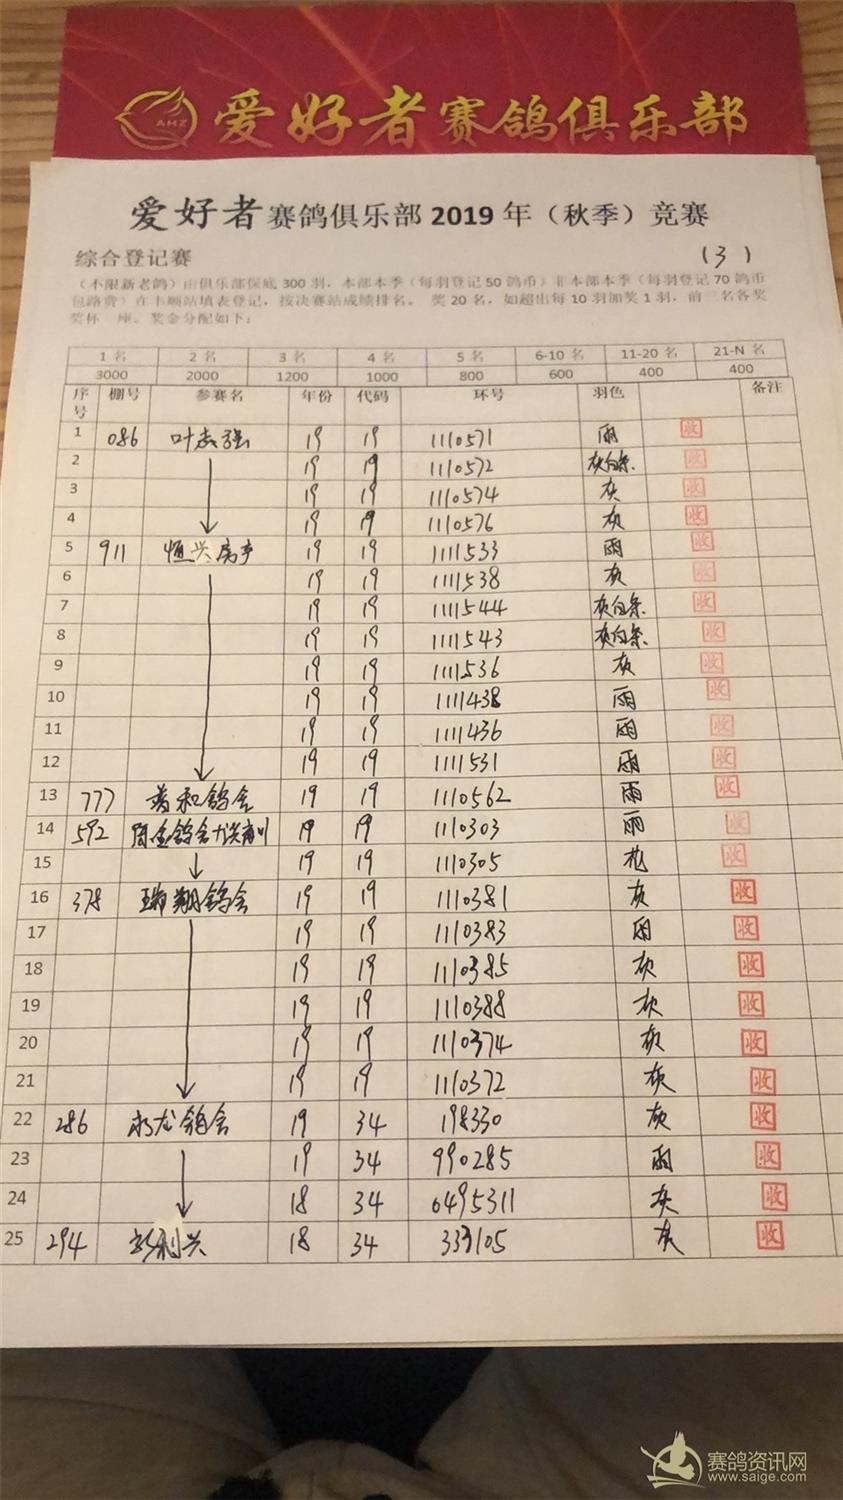 AHZ
爱好者赛鸽俱乐部
爱好者赛鸽俱乐部 2019 年（秋季）竞赛
综合登记赛 (3)
（不限新老鸽）由俱乐部保底 300 羽，本部本季（每羽登记 50 鸽币）非本部本季（每羽登记 70 鸽币
包路费）在丰顺站填表登记，按决赛站成绩排名。 奖 20 名，如超出每 10 羽加奖 1 羽，前三名各奖
奖杯一座。奖金分配如下：
1 名 2 名 3 名 4 名 5 名 6-10 名 11-20 名 21-N 名
3000 2000 1200 1000 800 600 400 400
序号 棚号 参赛名 年份 代码 环号 羽色 备注
1 086 叶志强 19 19 1110571 雨 收
2 19 19 1110572 灰白条 收
3 19 19 1110574 灰 收
4 19 19 1110576 灰 收
5 911 恒兴房产 19 19 1111533 雨 收
6 19 19 1111538 灰 收
7 19 19 1111544 灰白条 收
8 19 19 1111543 灰白条 收
9 19 19 1111536 灰 收
10 19 19 1111438 雨 收
11 19 19 1111436 雨 收
12 19 19 1111531 雨 收
13 777 和鸽舍 19 19 1110562 雨 收
14 592 19 19 1110303 雨 收
15 19 19 1110305 花 收
16 378 翔鸽舍 19 19 1110381 灰 收
17 19 19 1110383 雨 收
18 19 19 1110385 灰 收
19 19 19 1110388 灰 收
20 19 19 1110374 灰 收
21 19 19 1110372 灰 收
22 286 永龙鸽舍 19 34 198330 灰 收
23 19 34 990285 雨 收
24 18 34 6495311 灰 收
25 294 彭利兴 18 34 333105 灰 收
赛鸽资讯网
www.saige.com